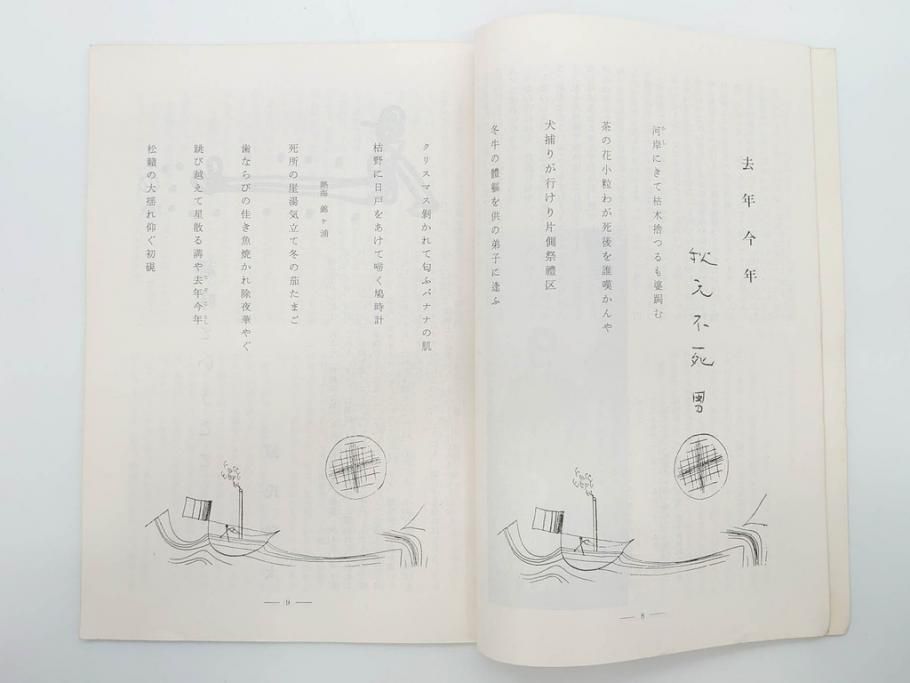 去年今年
秋元不死男
河岸にきて枯木捨つるも婆跼む
かし
茶の花小粒わが死後を誰嘆かんや
犬捕りが行けり片側祭禮区
冬牛の體軀を供の弟子に逢ふ
8
クリスマス剝かれて匂ふバナナの肌
枯野に日戸をあけて啼く鳩時計
熱海 錦ヶ浦
死所の崖湯気立て冬の茄たまご
歯ならびの佳き魚焼かれ除夜華やぐ
跳び越えて星散る溝や去年今年
松籟の大揺れ仰ぐ初硯
9